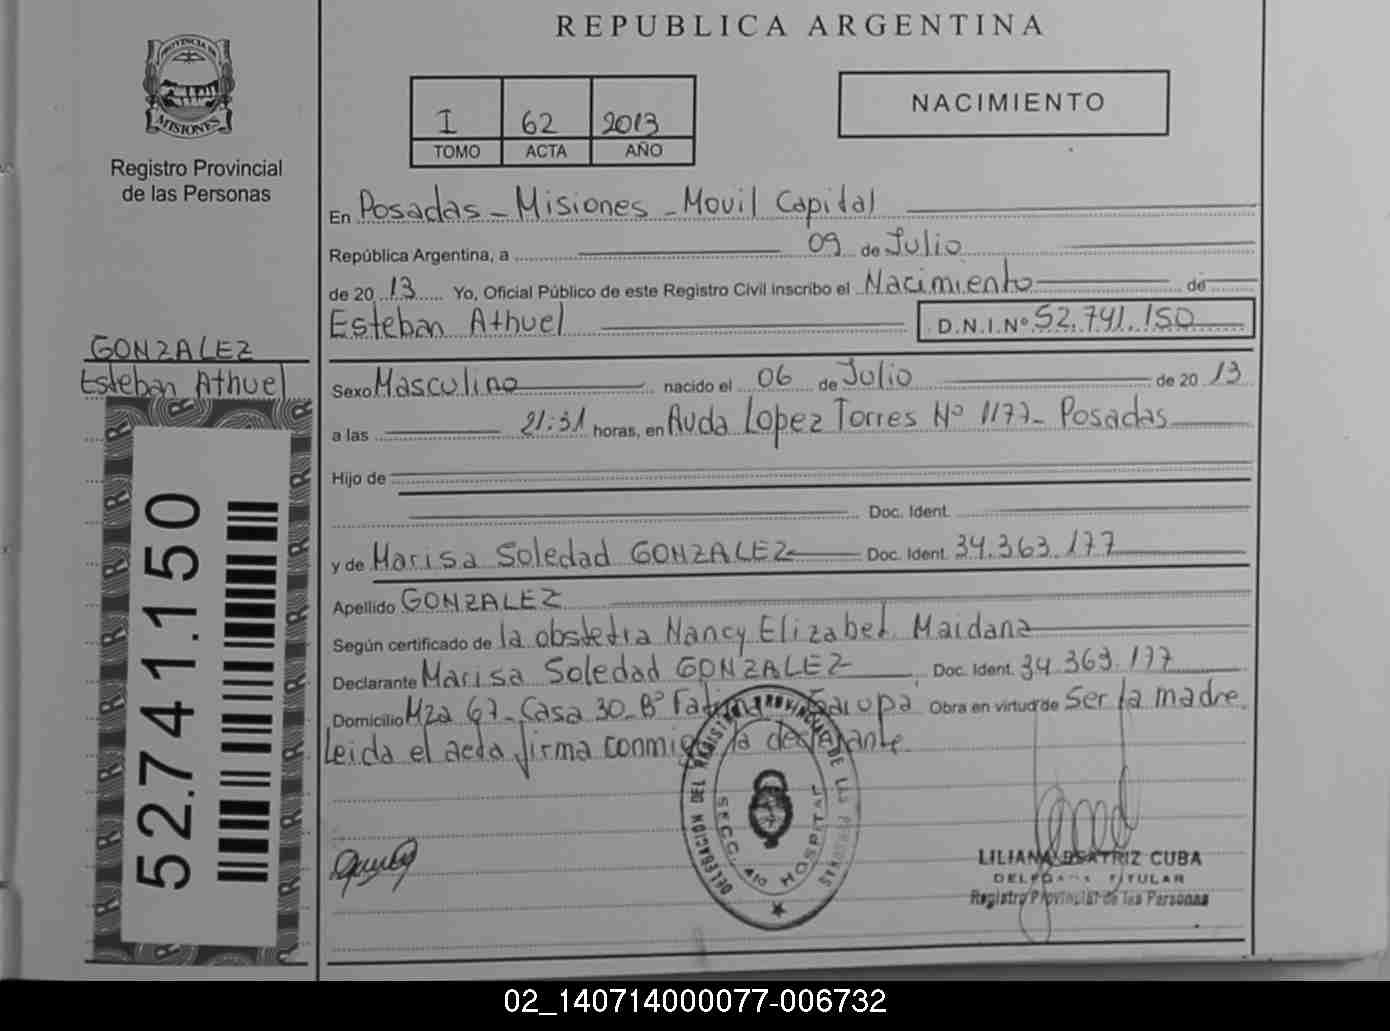 REPUBLICA ARGENTINA
PROVINCIA DE
MISIONES
Registro Provincial
de las Personas
I 62 2013
TOMO ACTA AÑO
NACIMIENTO
En Posadas - Misiones - Movil Capital
República Argentina, a 09 de Julio
de 20 13 Yo, Oficial Público de este Registro Civil inscribo el Nacimiento de
Esteban Athuel D.N.I.Nº 52.741.150
GONZALEZ
Esteban Athuel
Sexo Masculino nacido el 06 de Julio de 20 13
a las 21:31 horas, en Avda Lopez Torres Nº 1177 - Posadas
Hijo de
Doc. Ident.
y de Marisa Soledad GONZALEZ Doc. Ident. 34.363.177
Apellido GONZALEZ
Según certificado de la obstetra Nancy Elizabet Maidana
Declarante Marisa Soledad GONZALEZ Doc. Ident. 34.363.177
Domicilio Mza 67 - Casa 30 - Bº Fatima - Garupa Obra en virtud de Ser la madre.
Leida el acta firma conmigo la declarante.
52.741.150
DELEGACION DEL REGISTRO PROVINCIAL DE LAS PERSONAS
SECC. 410 HOSPITAL
LILIANA BEATRIZ CUBA
DELEGADA TITULAR
Registro Provincial de las Personas
02_140714000077-006732